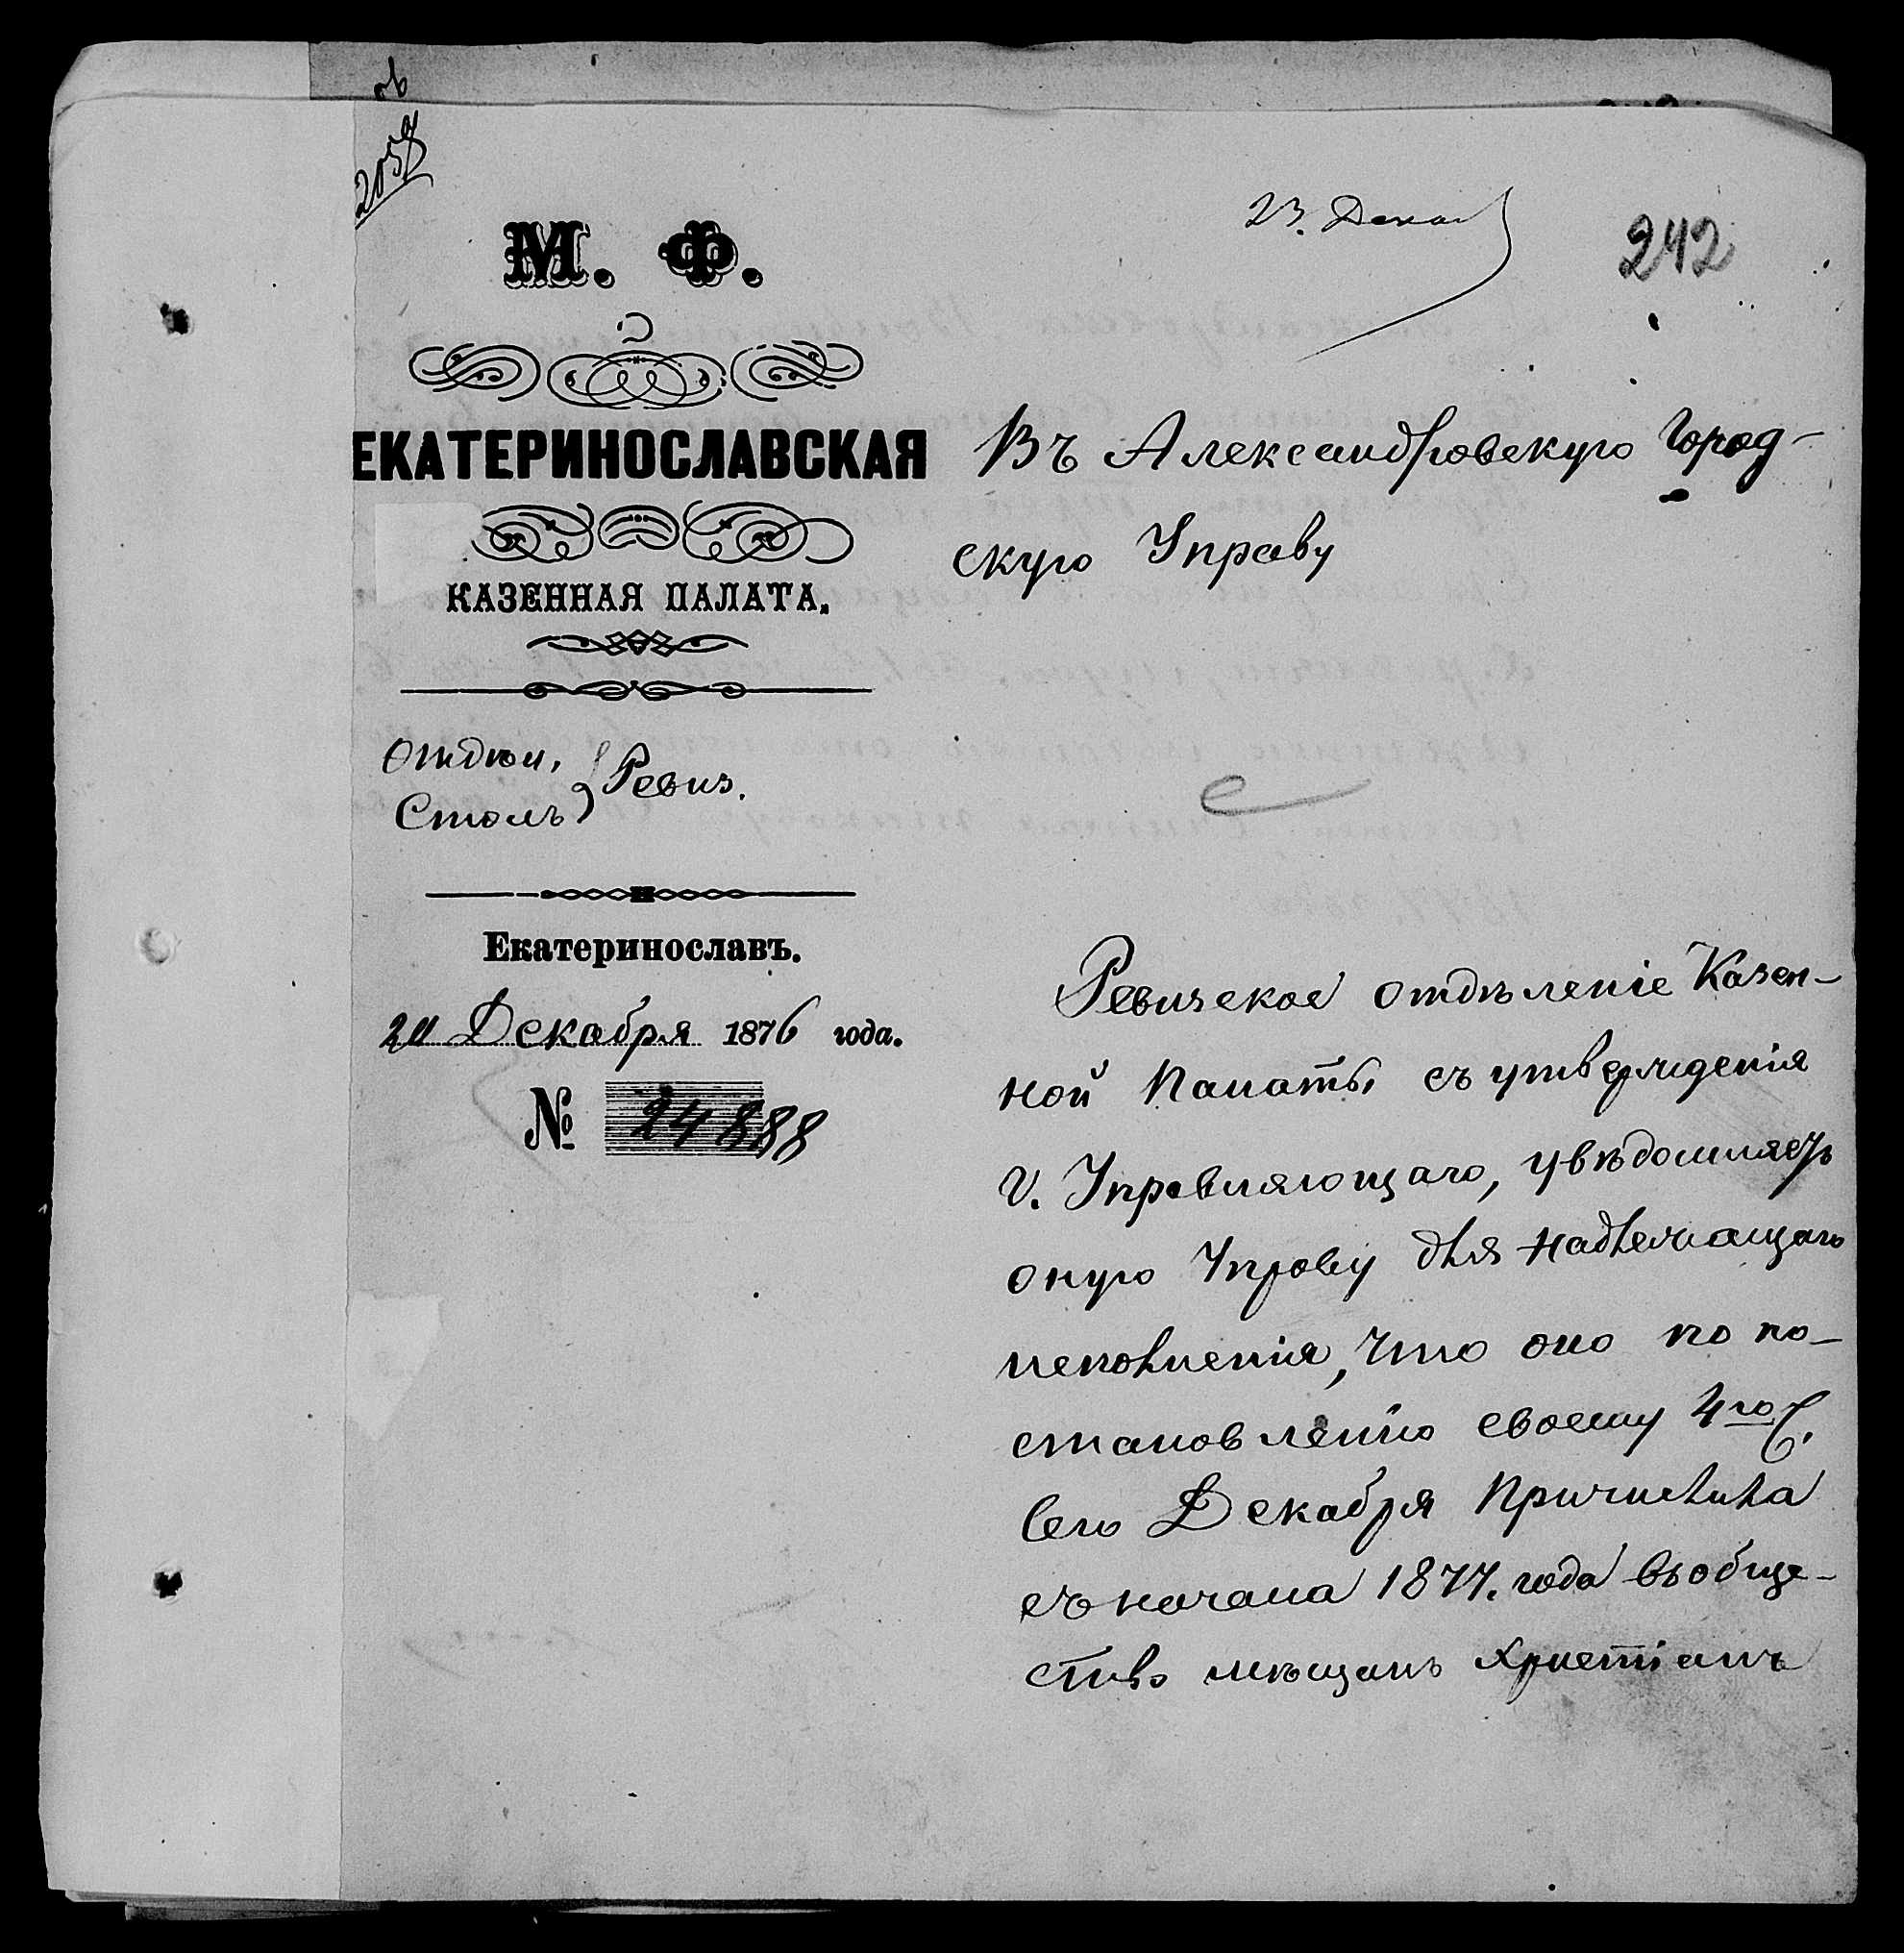 2058
М. Ф.
ЕКАТЕРИНОСЛАВСКАЯ
КАЗЕННАЯ ПАЛАТА.
Отдѣл.
Столъ } Ревиз.
Екатеринославъ.
20 Декабря 1876 года.
№ 24888
23. Декаб
242
Въ Александровскую Город-
скую Управу
Ревизское отдѣленіе Казен-
ной Палаты съ утвержденія
Г. Управляющаго, увѣдомляетъ
оную Управу для надлежащаго
исполненія, что оно по по-
становленію своему 4го
сего Декабря причислила
съ начала 1877. года въ обще-
ство мѣщанъ христіанъ